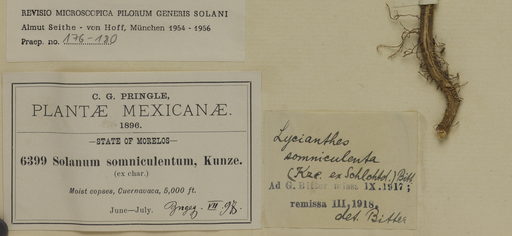 REVISIO MICROSCOPICA PILORUM GENERIS SOLANI
Almut Seithe - von Hoff, München 1954 - 1956
Praep. no. 176-180
C. G. PRINGLE,
PLANTÆ MEXICANÆ.
1896.
STATE OF MORELOS
6399 Solanum somniculentum, Kunze.
(ex char.)
Moist copses, Cuernavaca, 5,000 ft.
June—July. VII. 98.
Lycianthes
somniculenta
(Kze. ex Schlchtd.) Bitt.
Ad G. Bitter missa IX. 1917;
remissa III. 1918.
det. Bitter